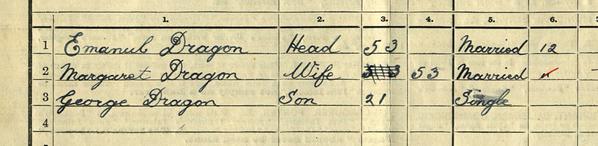 1. 2. 3. 4. 5. 6.
1 Emanul Dragon Head 53 Married 12
2 Margaret Dragon Wife 53 Married
3 George Dragon Son 21 Single
4